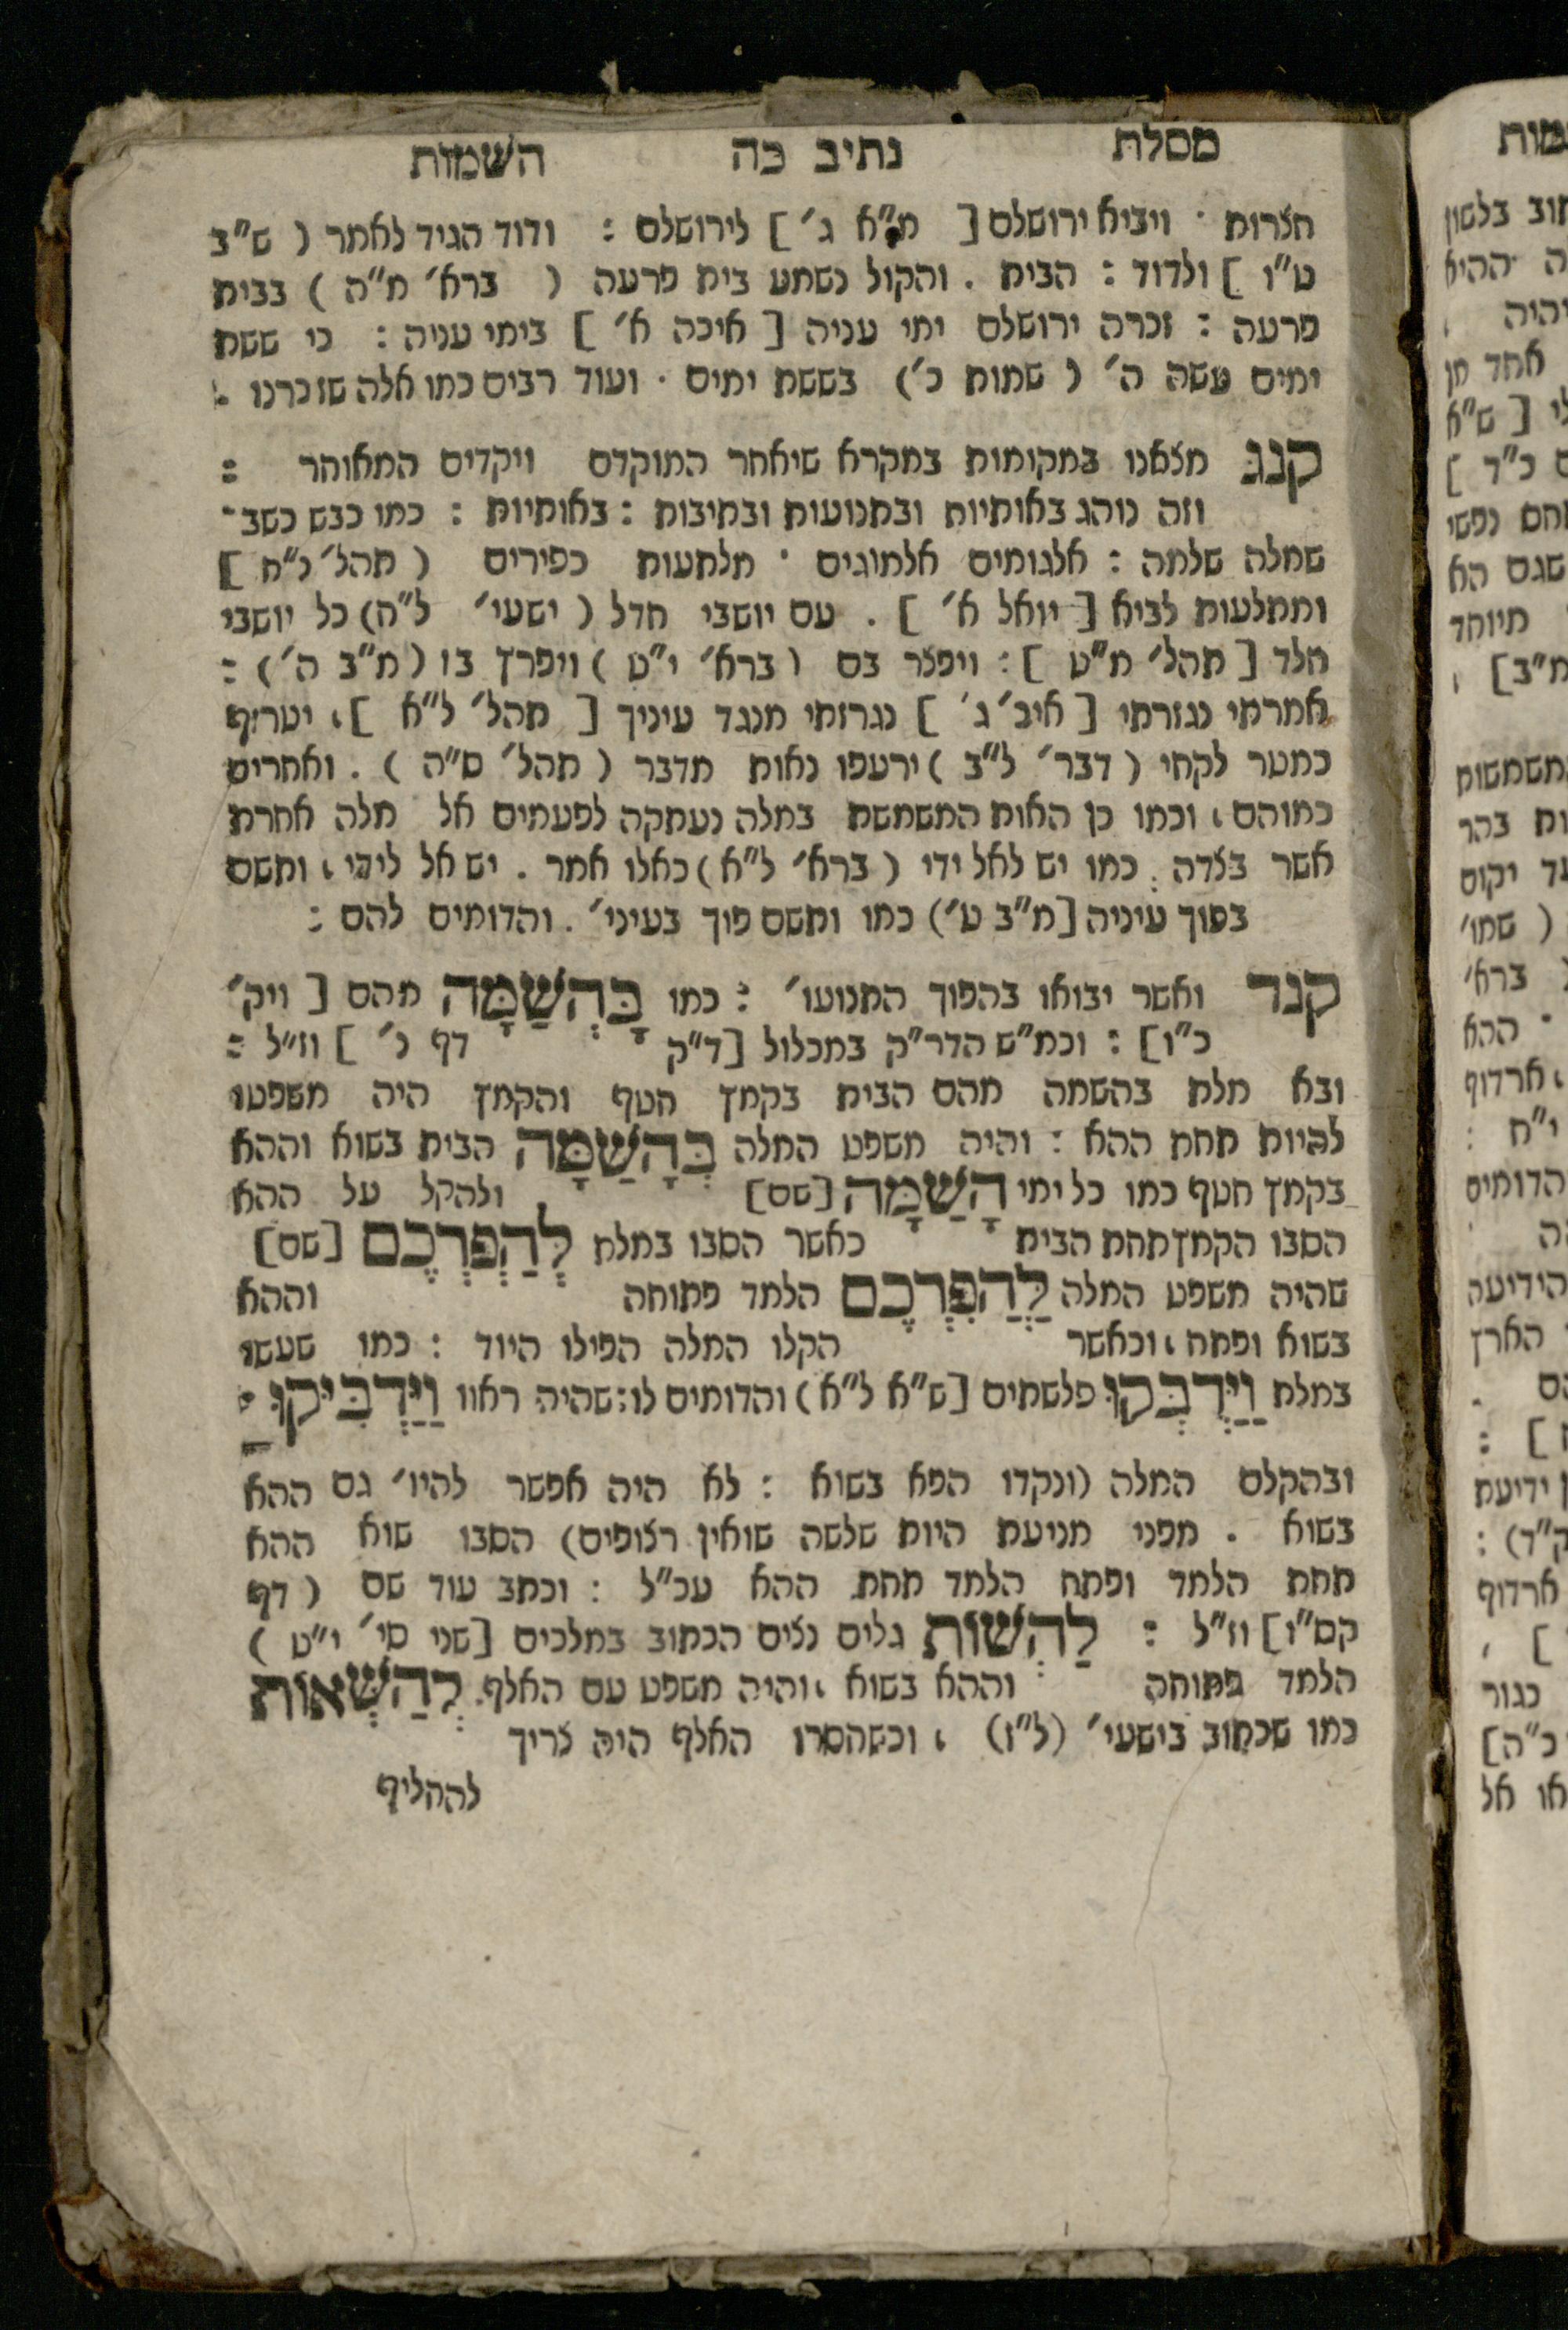 מסלת נתיב כה השמות
חצרות · ויביא ירושלם [ מ״א ג׳ ] לירושלם : ודוד הגיד לאמר ( ש״ב
ט״ו ] ולדוד : הבית . והקול נשמע בית פרעה ( ברא׳ מ״ה ) בבית
פרעה : זכרה ירושלם ימי עניה [ איכה א׳ ] בימי עניה : כי ששת
ימים עשה ה׳ ( שמות כ׳ ) בששת ימים · ועוד רבים כמו אלה שזכרנו :
קנג מצאנו במקומות במקרא שיאחר המוקדם ויקדים המאוחר :
וזה נוהג באותיות ובתנועות ובתיבות : באותיות : כמו כבש כשב־
שמלה שלמה : אלגומים אלמוגים · מלתעות כפירים ( תהל׳ נ״ח ]
ומתלעות לביא [ יואל א׳ ] . עם יושבי חדל ( ישעי׳ ל״ח) כל יושבי
חלד [ תהל׳ מ״ט ] : ויפצר בם ( ברא׳ י״ט ) ויפרץ בו ( מ״ב ה׳ ) :
אמרתי נגזרתי [ איכ׳ ג׳ ] נגרזתי מנגד עיניך [ תהל׳ ל״א ], יערוף
כמטר לקחי ( דבר׳ ל״ב ) ירעפו נאות מדבר ( תהל׳ ס״ה ) . ואחרים
כמוהם , וכמו כן האות המשמשת במלה נעתקה לפעמים אל מלה אחרת
אשר בצדה : כמו יש לאל ידי ( ברא׳ ל״א ) כאלו אמר . יש אל לידי , ותשם
בפוך עיניה [מ״ב ט׳) כמו ותשם פוך בעיני׳ . והדומים להם :
קנד ואשר יבואו בהפוך התנועו׳ : כמו בָּהְשַׁמָּה מהם [ ויק׳
כ״ו] : וכמ״ש הרד״ק במכלול [ד״ק דף נ׳ ] וז״ל :
ובא מלת בהשמה מהם הבית בקמץ חטף והקמץ היה משפטו
להיות תחת ההא : והיה משפט המלה בְּהָשַׁמָּה הבית בשוא וההא
בקמץ חטף כמו כל ימי הָשַּׁמָּה [שם] ולהקל על ההא
הסבו הקמץ תחת הבית כאשר הסבו במלת לְהַפְרְכֶם [שם]
שהיה משפט המלה לַהֲפִרְכֶם הלמד פתוחה וההא
בשוא ופתח , וכאשר הקלו המלה הפילו היוד : כמו שעשו
במלת וַיַּדְבְּקוּ פלשתים [ש״א ל״א) והדומים לו : שהיה ראוי וַיַּדְבִּיקוּ :
ובהקלם המלה (ונקדו הפא בשוא : לא היה אפשר להיו׳ גם ההא
בשוא . מפני מניעת היות שלשה שואין רצופים) הסבו שוא ההא
תחת הלמד ופתח הלמד תחת ההא עכ״ל : וכתב עוד שם ( דף
קס״ו] וז״ל : לַהְשׁוֹת גלים נצים הכתוב במלכים [שני סי׳ י״ט )
הלמד פתוחה וההא בשוא , והיה משפט עם האלף. לְהַשְׁאוֹת
כמו שכתוב בישעי׳ (ל״ז) , וכשהסרו האלף היה צריך
להחליף